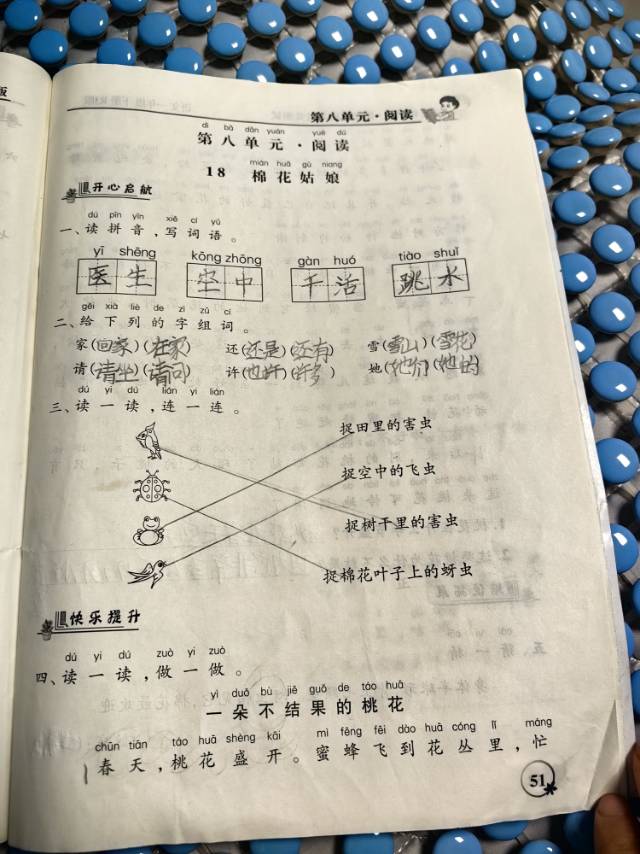 第八单元·阅读
dì bā dān yuán yuè dú
第八单元·阅读
mián huā gū niang
18 棉花姑娘
开心启航
dú pīn yīn xiě cí yǔ
一、读拼音,写词语。
yī shēng kōng zhōng gàn huó tiào shuǐ
医生 空中 干活 跳水
gěi xià liè de zì zǔ cí
二、给下列的字组词。
家(回家)(在家) 还(还是)(还有) 雪(雪山)(雪花)
请(请坐)(请问) 许(也许)(许多) 地(他们)(他的)
dú yi dú lián yi lián
三、读一读,连一连。
捉田里的害虫
捉空中的飞虫
捉树干里的害虫
捉棉花叶子上的蚜虫
快乐提升
dú yi dú zuò yi zuò
四、读一读,做一做。
yì duǒ bù jiē guǒ de táo huā
一朵不结果的桃花
chūn tiān táo huā shèng kāi mì fēng fēi dào huā cóng lǐ máng
春天,桃花盛开。蜜蜂飞到花丛里,忙
51